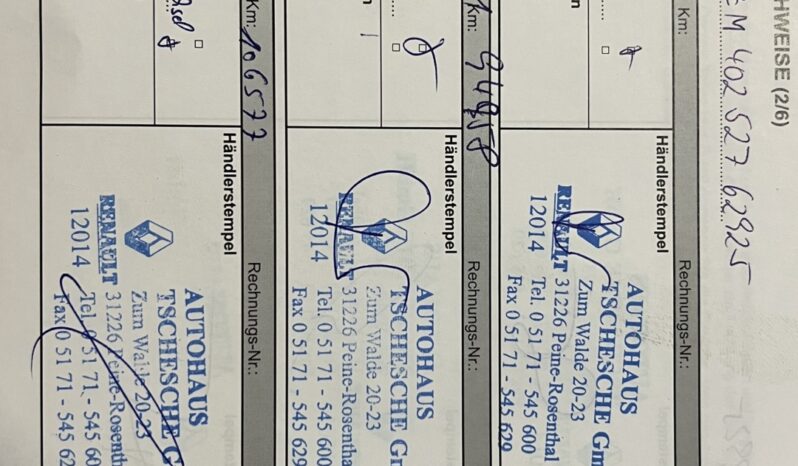 HWEISE (2/6)
EM 402 527 62925
Km: Rechnungs-Nr.:
Händlerstempel
AUTOHAUS
TSCHESCHE Gm
Zum Walde 20-23
RENAULT 31226 Peine-Rosenthal
12014 Tel. 0 51 71 - 545 600
Fax 0 51 71 - 545 629
Km: 94958 Rechnungs-Nr.:
Händlerstempel
AUTOHAUS
TSCHESCHE Gm
Zum Walde 20-23
RENAULT 31226 Peine-Rosenthal
12014 Tel. 0 51 71 - 545 600
Fax 0 51 71 - 545 629
Km: 106577 Rechnungs-Nr.:
Händlerstempel
AUTOHAUS
TSCHESCHE G
Zum Walde 20-23
RENAULT 31226 Peine-Rosenth
12014 Tel. 0 51 71 - 545 60
Fax 0 51 71 - 545 62